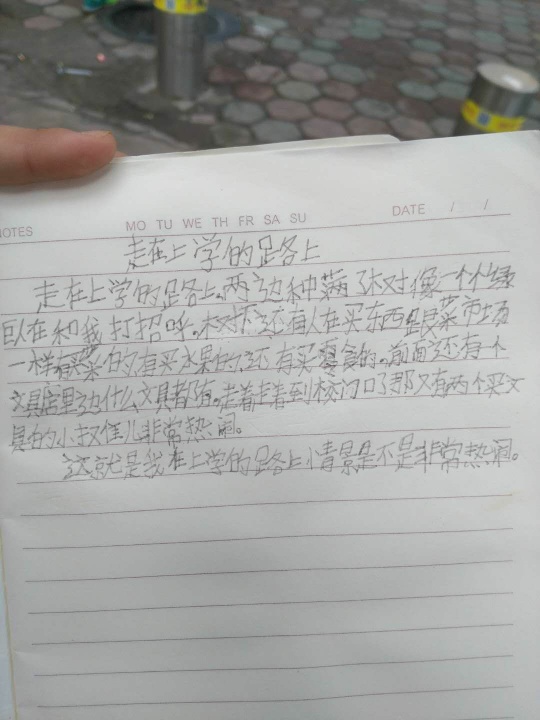 NOTES MO TU WE TH FR SA SU DATE / /
走在上学的路上
走在上学的路上,两边种满了树对像一个个绿
巨人在和我打招呼。树下还有人在买东西跟菜市场
一样有买菜的,有买水果的,还有买零食的。前面还有个
文具店里边什么文具都有。走着走着到校门口了那又有两个买文
具的小摊儿非常热闹。
这就是我在上学的路上情景是不是非常热闹。